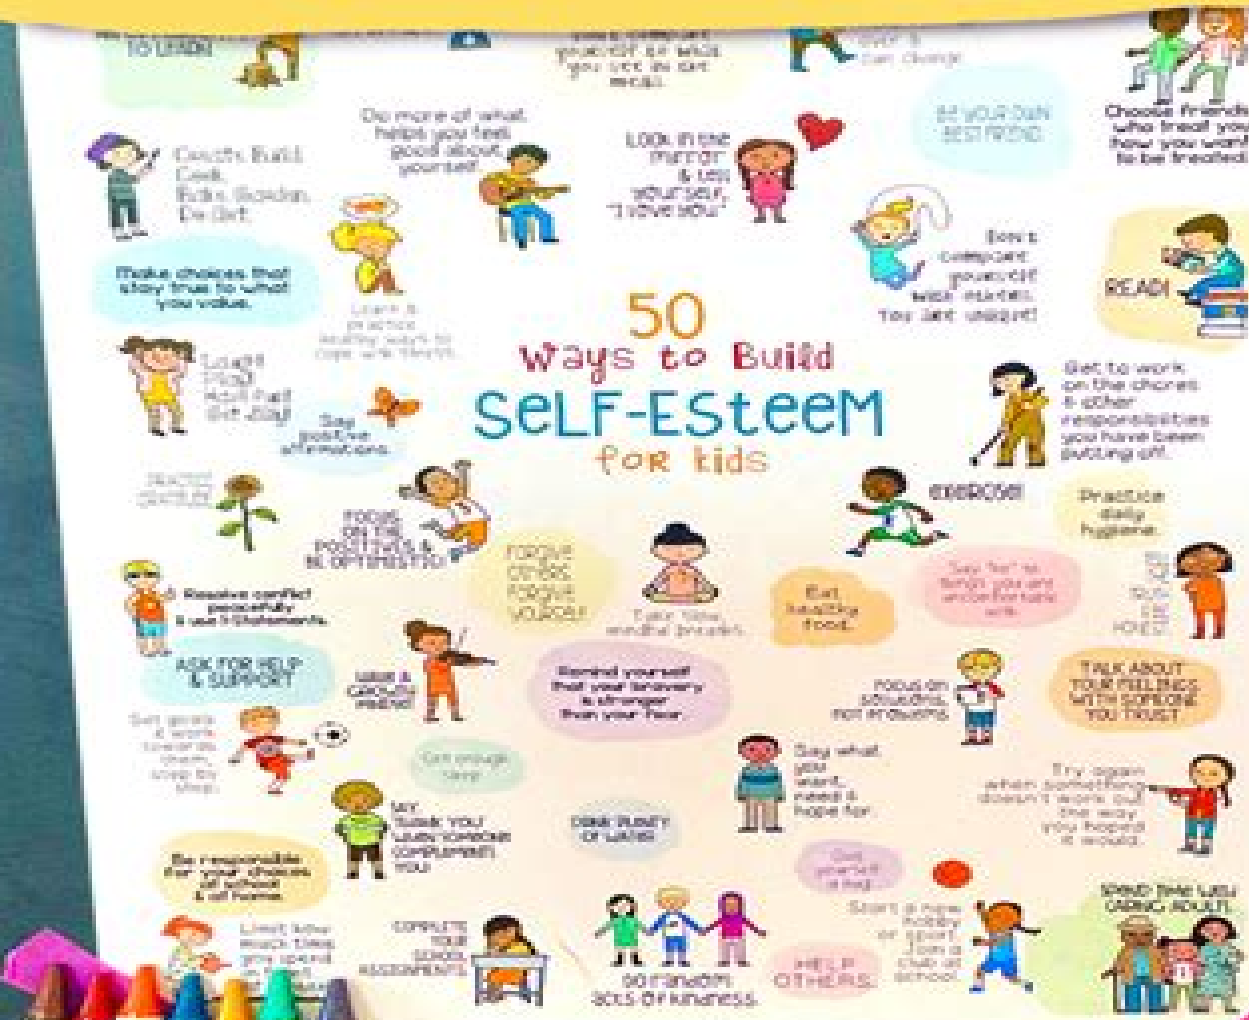 TO LEARN
yourself to what
you see in the
media.
can change
Choose friends
who treat you
how you want
to be treated.
BE YOUR OWN
BEST FRIEND
Do more of what
helps you feel
good about
yourself.
Look in the
mirror
& tell
yourself,
"I love you"
Create. Build.
Cook.
Bake. Garden.
Do Art.
Make choices that
stay true to what
you value.
Learn &
practice
healthy ways to
cope with stress.
Don't
compare
yourself
with others.
You are unique!
READ!
50
Ways to Build
SELF-ESTEEM
for kids
Laugh
Play
Have Fun
Get Silly!
Say
positive
affirmations.
Get to work
on the chores
& other
responsibilities
you have been
putting off.
PRACTICE
GRATITUDE
FOCUS
ON THE
POSITIVES &
BE OPTIMISTIC!
EXERCISE!
Practice
daily
hygiene.
FORGIVE
OTHERS.
FORGIVE
YOURSELF
Take slow,
mindful breaths.
Eat
healthy
food.
Say "no" to
things you are
uncomfortable
with.
Resolve conflict
peacefully
& use I-Statements.
ASK FOR HELP
& SUPPORT
HAVE A
GROWTH
MINDSET
Remind yourself
that your bravery
is stronger
than your fear.
FOCUS ON
SOLUTIONS,
NOT PROBLEMS.
TALK ABOUT
YOUR FEELINGS
WITH SOMEONE
YOU TRUST
Set goals
& work
towards
them,
step by
step.
Get enough
sleep
Say what
you
want,
need &
hope for.
Try again
when something
doesn't work out
the way
you hoped
it would.
SAY
THANK YOU
WHEN SOMEONE
COMPLIMENTS
YOU
DRINK PLENTY
OF WATER
Be responsible
for your choices
at school
& at home.
Give
yourself
a hug.
Start a new
hobby
or sport.
Join a
club at
school.
SPEND TIME WITH
CARING ADULTS.
Limit how
much time
you spend
COMPLETE
YOUR
SCHOOL
ASSIGNMENTS.
Do random
acts of kindness.
HELP
OTHERS.